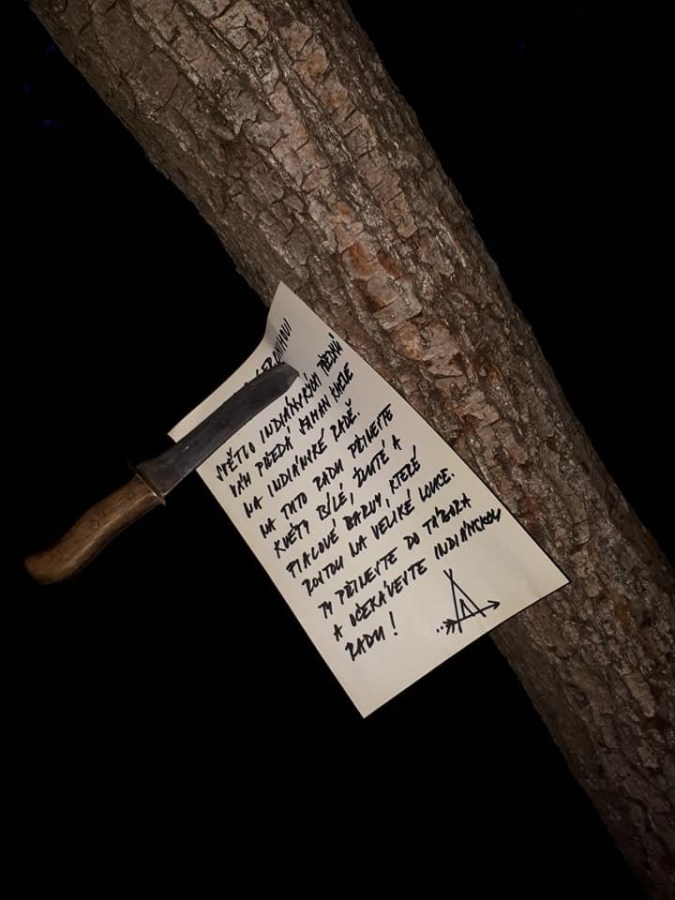 SVĚTLO INDIÁNSKÝCH PŘEDKŮ
VÁM PŘEDÁ ŠAMAN
NA INDIÁNSKÉ RADĚ.
NA TUTO RADU PŘINESTE
KVĚTY BÍLÉ, ŽLUTÉ A
FIALOVÉ BARVY, KTERÉ
ROSTOU NA VELIKÉ LOUCE.
TY PŘINESTE DO TÁBORA
A OČEKÁVEJTE INDIÁNSKOU
RADU!